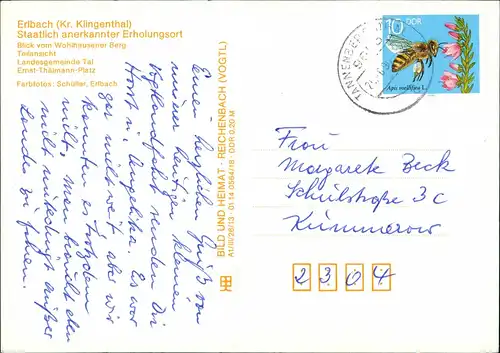 Erlbach (Kr. Klingenthal)
Staatlich anerkannter Erholungsort
Blick vom Wohlhausener Berg
Teilansicht
Landesgemeinde Tal
Ernst-Thälmann-Platz
Farbfotos: Schüller, Erlbach
Einen herzlichen Gruß von
unserer heutigen kleinen
Vogtlandfahrt senden Dir
Horst u. Angelika. Es war
gar nicht weit, aber wir
konnten es trotzdem
nicht, man braucht eben
nicht unbedingt außer
Landes zu fahren.
BILD UND HEIMAT · REICHENBACH (VOGTL)
A1/III/26/13 01 14 0564/18 DDR 0,20 M
10 DDR
Apis mellifica L.
TANNENBERG
Frau
Margarete Beck
Schulstraße 3c
Kummerow
2304